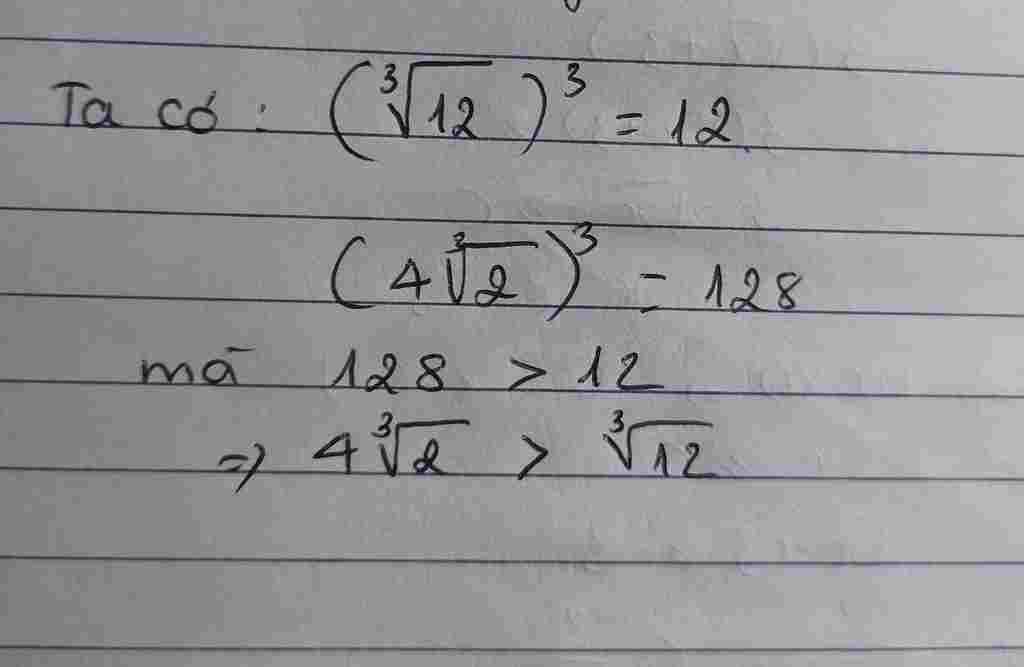 Ta có : (∛12)³ = 12
(4∛2)³ = 128
mà 128 > 12
=> 4∛2 > ∛12